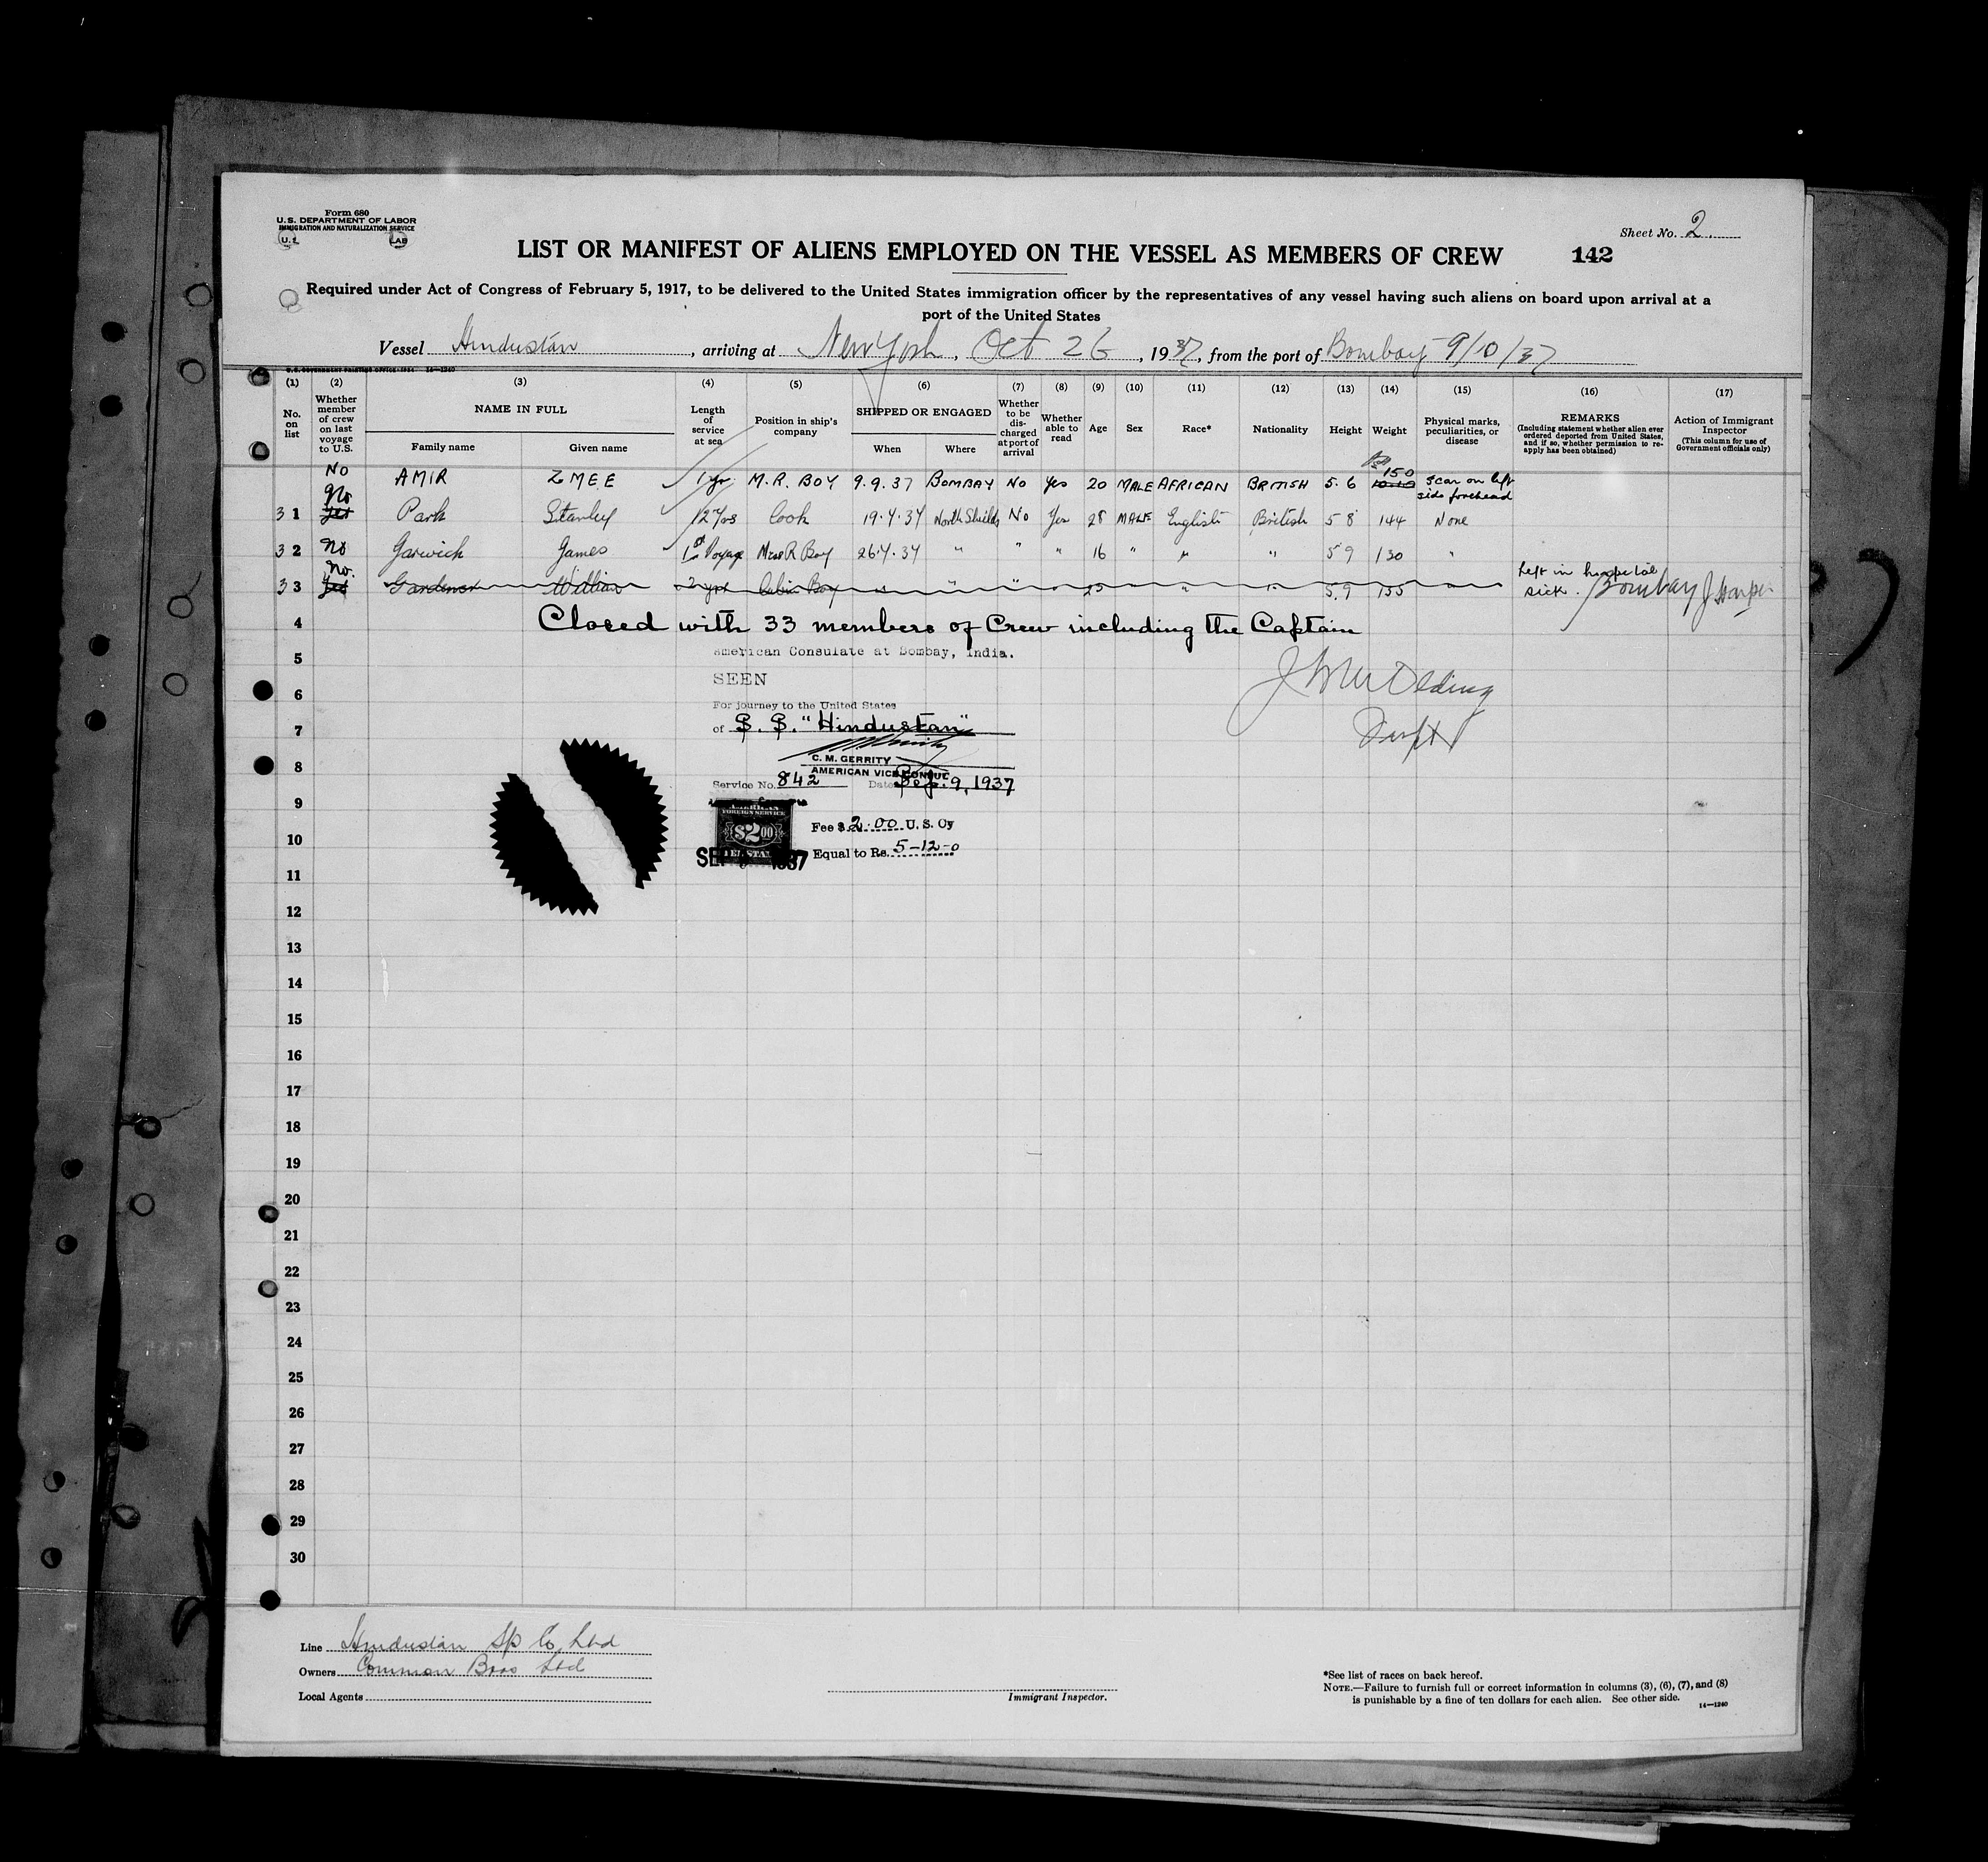 Form 680
U.S. DEPARTMENT OF LABOR
IMMIGRATION AND NATURALIZATION SERVICE
Sheet No. 2
LIST OR MANIFEST OF ALIENS EMPLOYED ON THE VESSEL AS MEMBERS OF CREW 142
Required under Act of Congress of February 5, 1917, to be delivered to the United States immigration officer by the representatives of any vessel having such aliens on board upon arrival at a
port of the United States
Vessel Hindustan, arriving at New York, Oct 26, 1937, from the port of Bombay 9/10/37
(1) (2) (3) (4) (5) (6) (7) (8) (9) (10) (11) (12) (13) (14) (15) (16) (17)
No. on list
Whether member of crew on last voyage to U.S.
NAME IN FULL
Family name Given name
Length of service at sea
Position in ship's company
SHIPPED OR ENGAGED
When Where
Whether to be discharged at port of arrival
Whether able to read
Age
Sex
Race*
Nationality
Height
Weight
Physical marks, peculiarities, or disease
REMARKS
(Including statement whether alien ever ordered deported from United States, and if so, whether permission to re-apply has been obtained)
Action of Immigrant Inspector
(This column for use of Government officials only)
No AMIR ZMEE 1 yr M. R. BOY 9.9.37 BOMBAY No Yes 20 MALE AFRICAN BRITISH 5.6 150 Scar on left side forehead
31 No Yes Park Stanley 12 Yrs Cook 19.7.37 North Shields No Yes 28 MALE English British 5 8 144 None
32 No Garwick James 1st Voyage Mess R Boy 26.7.37 " " " 16 " " " 5 9 130 "
33 No. Yes Gardener William 2 yrs Cabin Boy " " " " 25 " " 5.9 155 Left in hospital sick. Bombay J Harper
4 Closed with 33 members of Crew including the Captain
5 American Consulate at Bombay, India.
6 SEEN
For journey to the United States
7 of S. S. "Hindustan"
8 C. M. GERRITY
AMERICAN VICE CONSUL
Service No. 842 Date Sep. 9, 1937
9 FOREIGN SERVICE
$2.00
Fee $ 2.00 U. S. Cy
10 SEP 1937 Equal to Rs. 5-12-0
11
12
13
14
15
16
17
18
19
20
21
22
23
24
25
26
27
28
29
30
Line Hindustan Sp Co Ltd
Owners Common Bros Ltd
Local Agents
Immigrant Inspector.
*See list of races on back hereof.
NOTE.—Failure to furnish full or correct information in columns (3), (6), (7), and (8)
is punishable by a fine of ten dollars for each alien. See other side.
14—1240